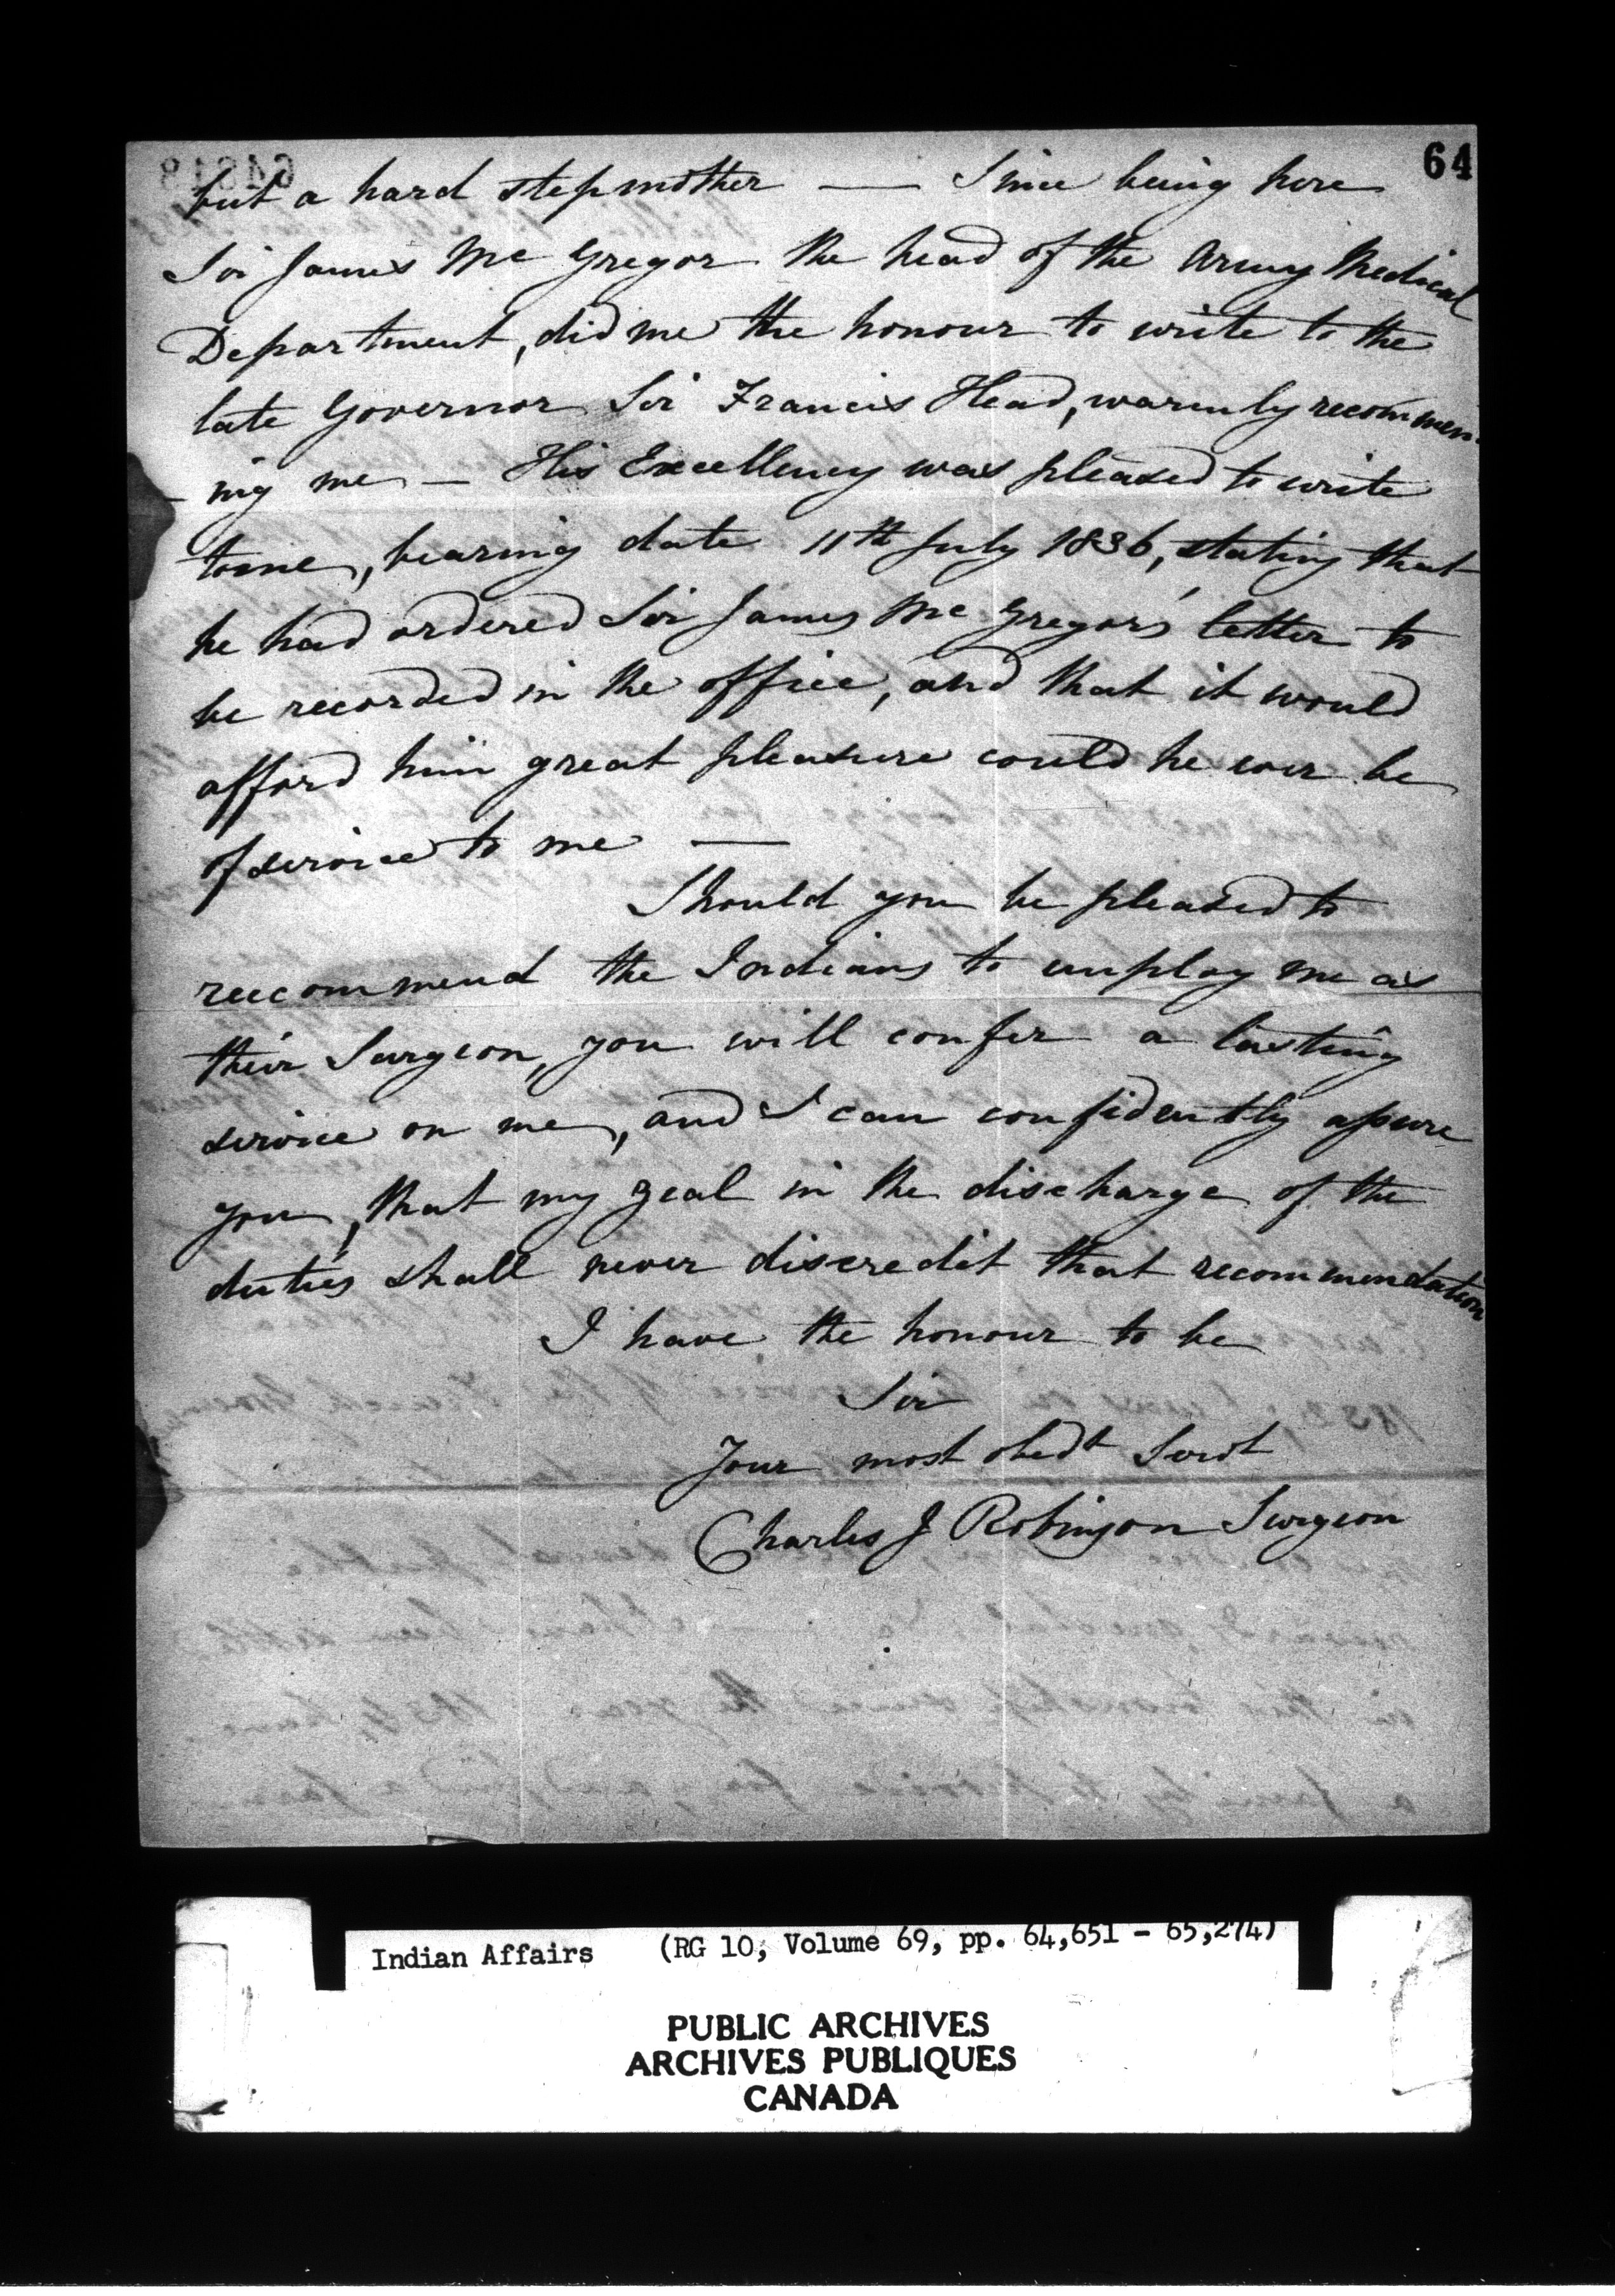 64
but a hard stepmother — Since being here
Sir James McGregor the head of the Army Medical
Department, did me the honour to write to the
late Governor Sir Francis Head, warmly recommen
ing me — His Excellency was pleased to write
to me, bearing date 11th July 1836, stating that
he had ordered Sir James McGregor's letter to
be recorded in the office, and that it would
afford him great pleasure could he ever be
of service to me —
Should you be pleased to
reccommend the Indians to employ me as
their Surgeon, you will confer a lasting
service on me, and I can confidently assure
you, that my zeal in the discharge of the
duties shall never discredit that recommendation
I have the honour to be
Sir
Your most obedt Servt
Charles J Robinson Surgeon
Indian Affairs (RG 10, Volume 69, pp. 64,651 - 65,274)
PUBLIC ARCHIVES
ARCHIVES PUBLIQUES
CANADA